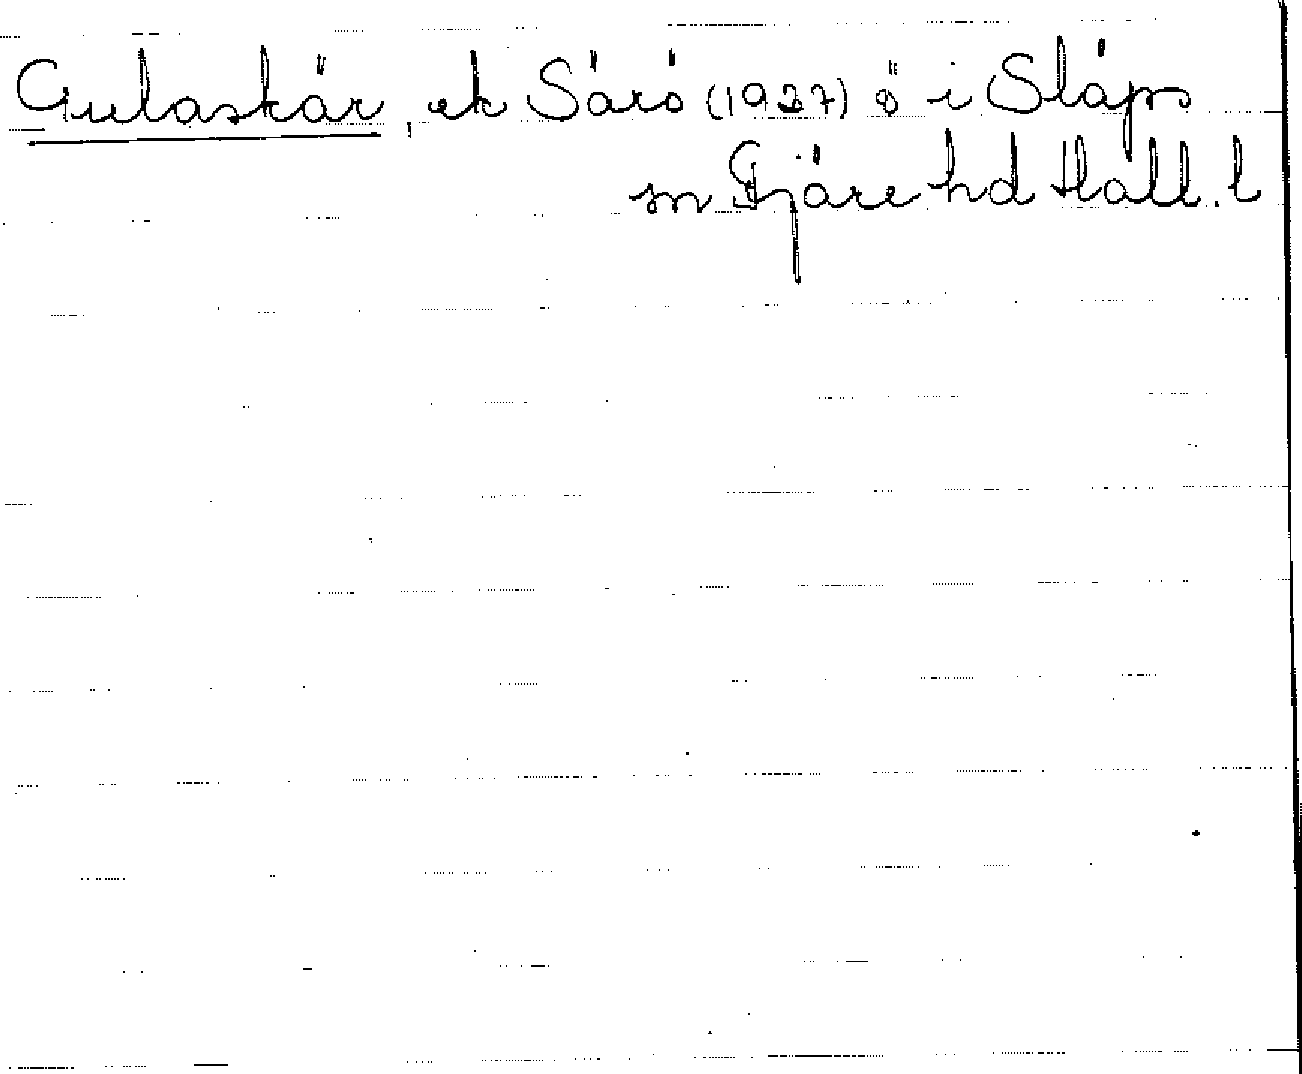 Gulaskär, ek Särö (1927) ö i Släps
sn Fjäre hd Hall. l